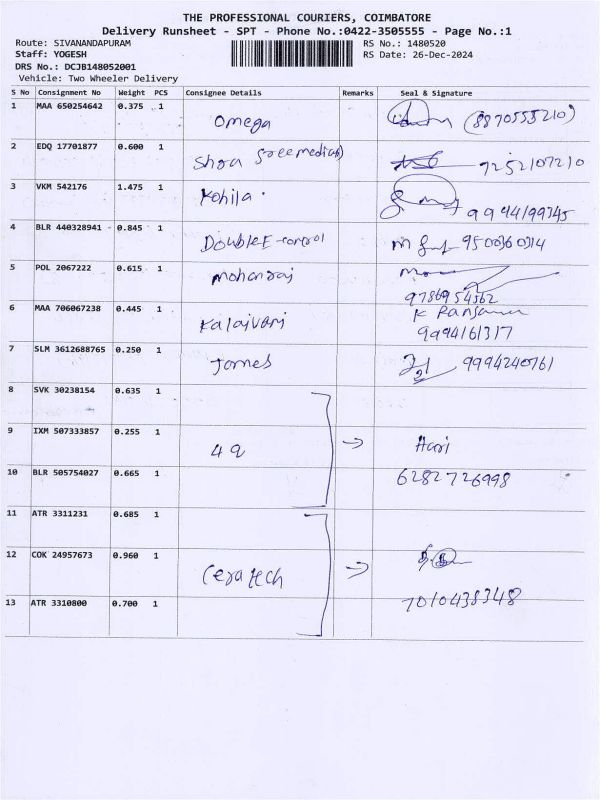 THE PROFESSIONAL COURIERS, COIMBATORE
Delivery Runsheet - SPT - Phone No.:0422-3505555 - Page No.:1
Route: SIVANANDAPURAM RS No.: 1480520
Staff: YOGESH RS Date: 26-Dec-2024
DRS No.: DCJB148052001
Vehicle: Two Wheeler Delivery
S No Consignment No Weight PCS Consignee Details Remarks Seal & Signature
1 MAA 650254642 0.375 1 Omega (8870555210)
2 EDQ 17701877 0.600 1 7252107210
3 VKM 542176 1.475 1 Kohila. 9994199745
4 BLR 440328941 0.845 1 DoubleE-control 9500360314
5 POL 2067222 0.615 1 mohanraj
9786954562
6 MAA 706067238 0.445 1 Kalaivani
9994161317
7 SLM 3612688765 0.250 1 James 9994240761
8 SVK 30238154 0.635 1
9 IXM 507333857 0.255 1 4Q → Hari
10 BLR 505754027 0.665 1 6282726998
11 ATR 3311231 0.685 1
12 COK 24957673 0.960 1 Ceratech →
13 ATR 3310800 0.700 1 7010438348